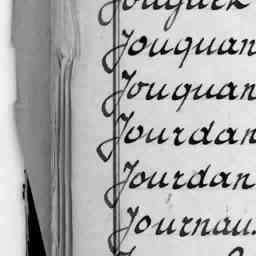 Jouquan
Jouquan
Jourdan
Jourdan
Journau